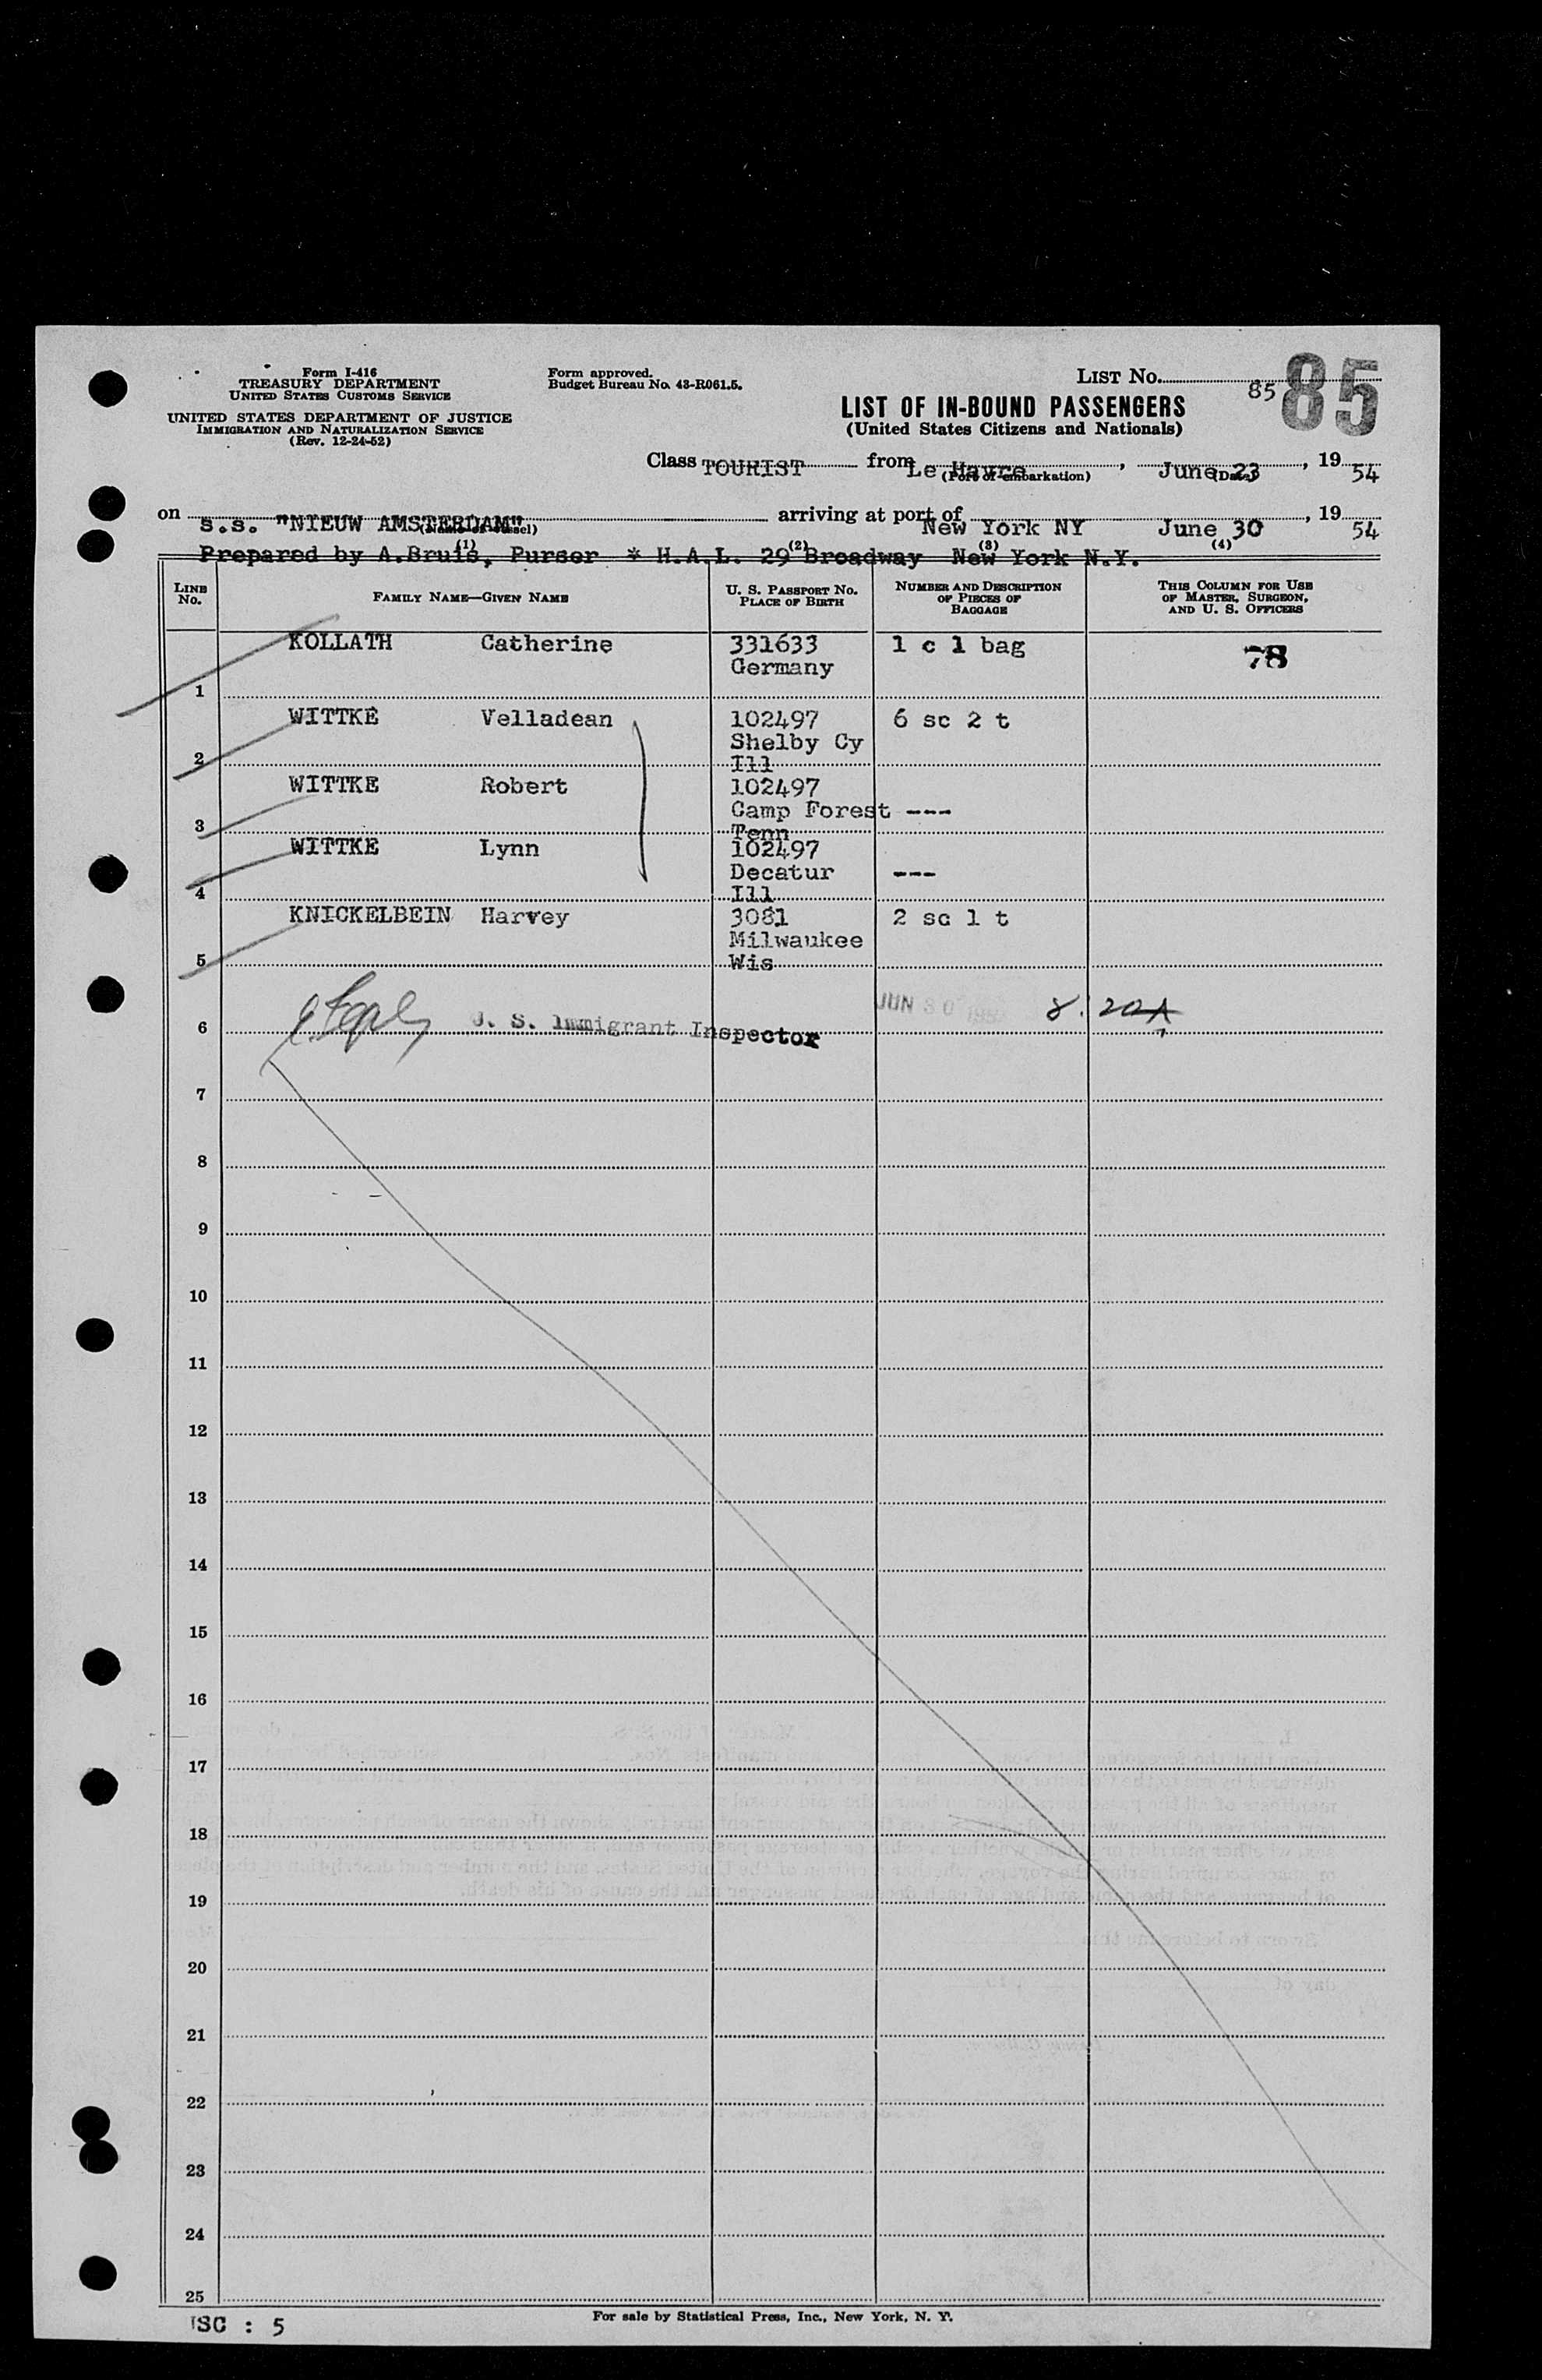 Form I-416
TREASURY DEPARTMENT
UNITED STATES CUSTOMS SERVICE
UNITED STATES DEPARTMENT OF JUSTICE
IMMIGRATION AND NATURALIZATION SERVICE
(Rev. 12-24-52)
Form approved.
Budget Bureau No. 43-R061.5.
LIST No. 85 85
LIST OF IN-BOUND PASSENGERS
(United States Citizens and Nationals)
Class TOURIST from Le Havre, June 23, 19 54
(Port of embarkation) (Date)
on s.s. "NIEUW AMSTERDAM" arriving at port of New York NY June 30, 19 54
(Name of vessel)
Prepared by A.Bruis, Purser * H.A.L. 29 Broadway New York N.Y.
(1) (2) (3) (4)
LINE No. FAMILY NAME—GIVEN NAME U. S. PASSPORT No. PLACE OF BIRTH NUMBER AND DESCRIPTION OF PIECES OF BAGGAGE THIS COLUMN FOR USE OF MASTER, SURGEON, AND U. S. OFFICERS
KOLLATH Catherine 331633 1 c 1 bag 78
Germany
1
WITTKE Velladean 102497 6 sc 2 t
Shelby Cy
2 Ill
WITTKE Robert 102497
Camp Forest ---
3 Tenn
WITTKE Lynn 102497
Decatur ---
4 Ill
KNICKELBEIN Harvey 3081 2 sc 1 t
Milwaukee
5 Wis
6 U. S. Immigrant Inspector JUN 30 1954 8:20A
7
8
9
10
11
12
13
14
15
16
17
18
19
20
21
22
23
24
25
For sale by Statistical Press, Inc., New York, N. Y.
USC : 5